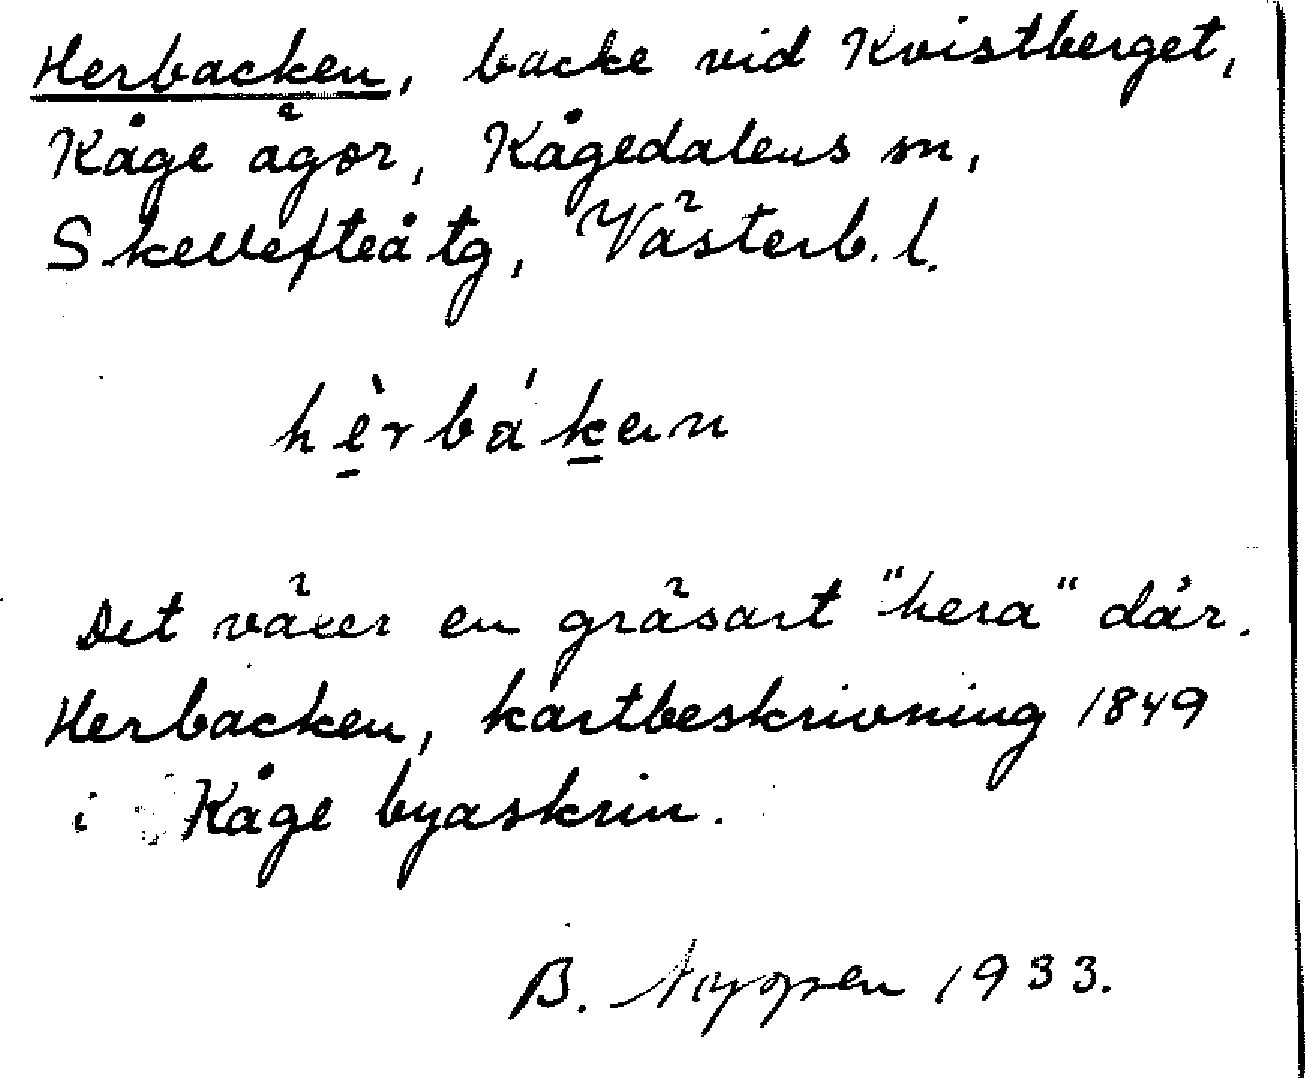 Herbacken, backe vid Kvistberget,
Kåge ägor, Kågedalens sn,
Skellefteå tg, Västerb. l.
hè̱rbáḵen
Det växer en gräsart "hera" där.
Herbacken, kartbeskrivning 1849
i Kåge byaskrin.
B. 1933.